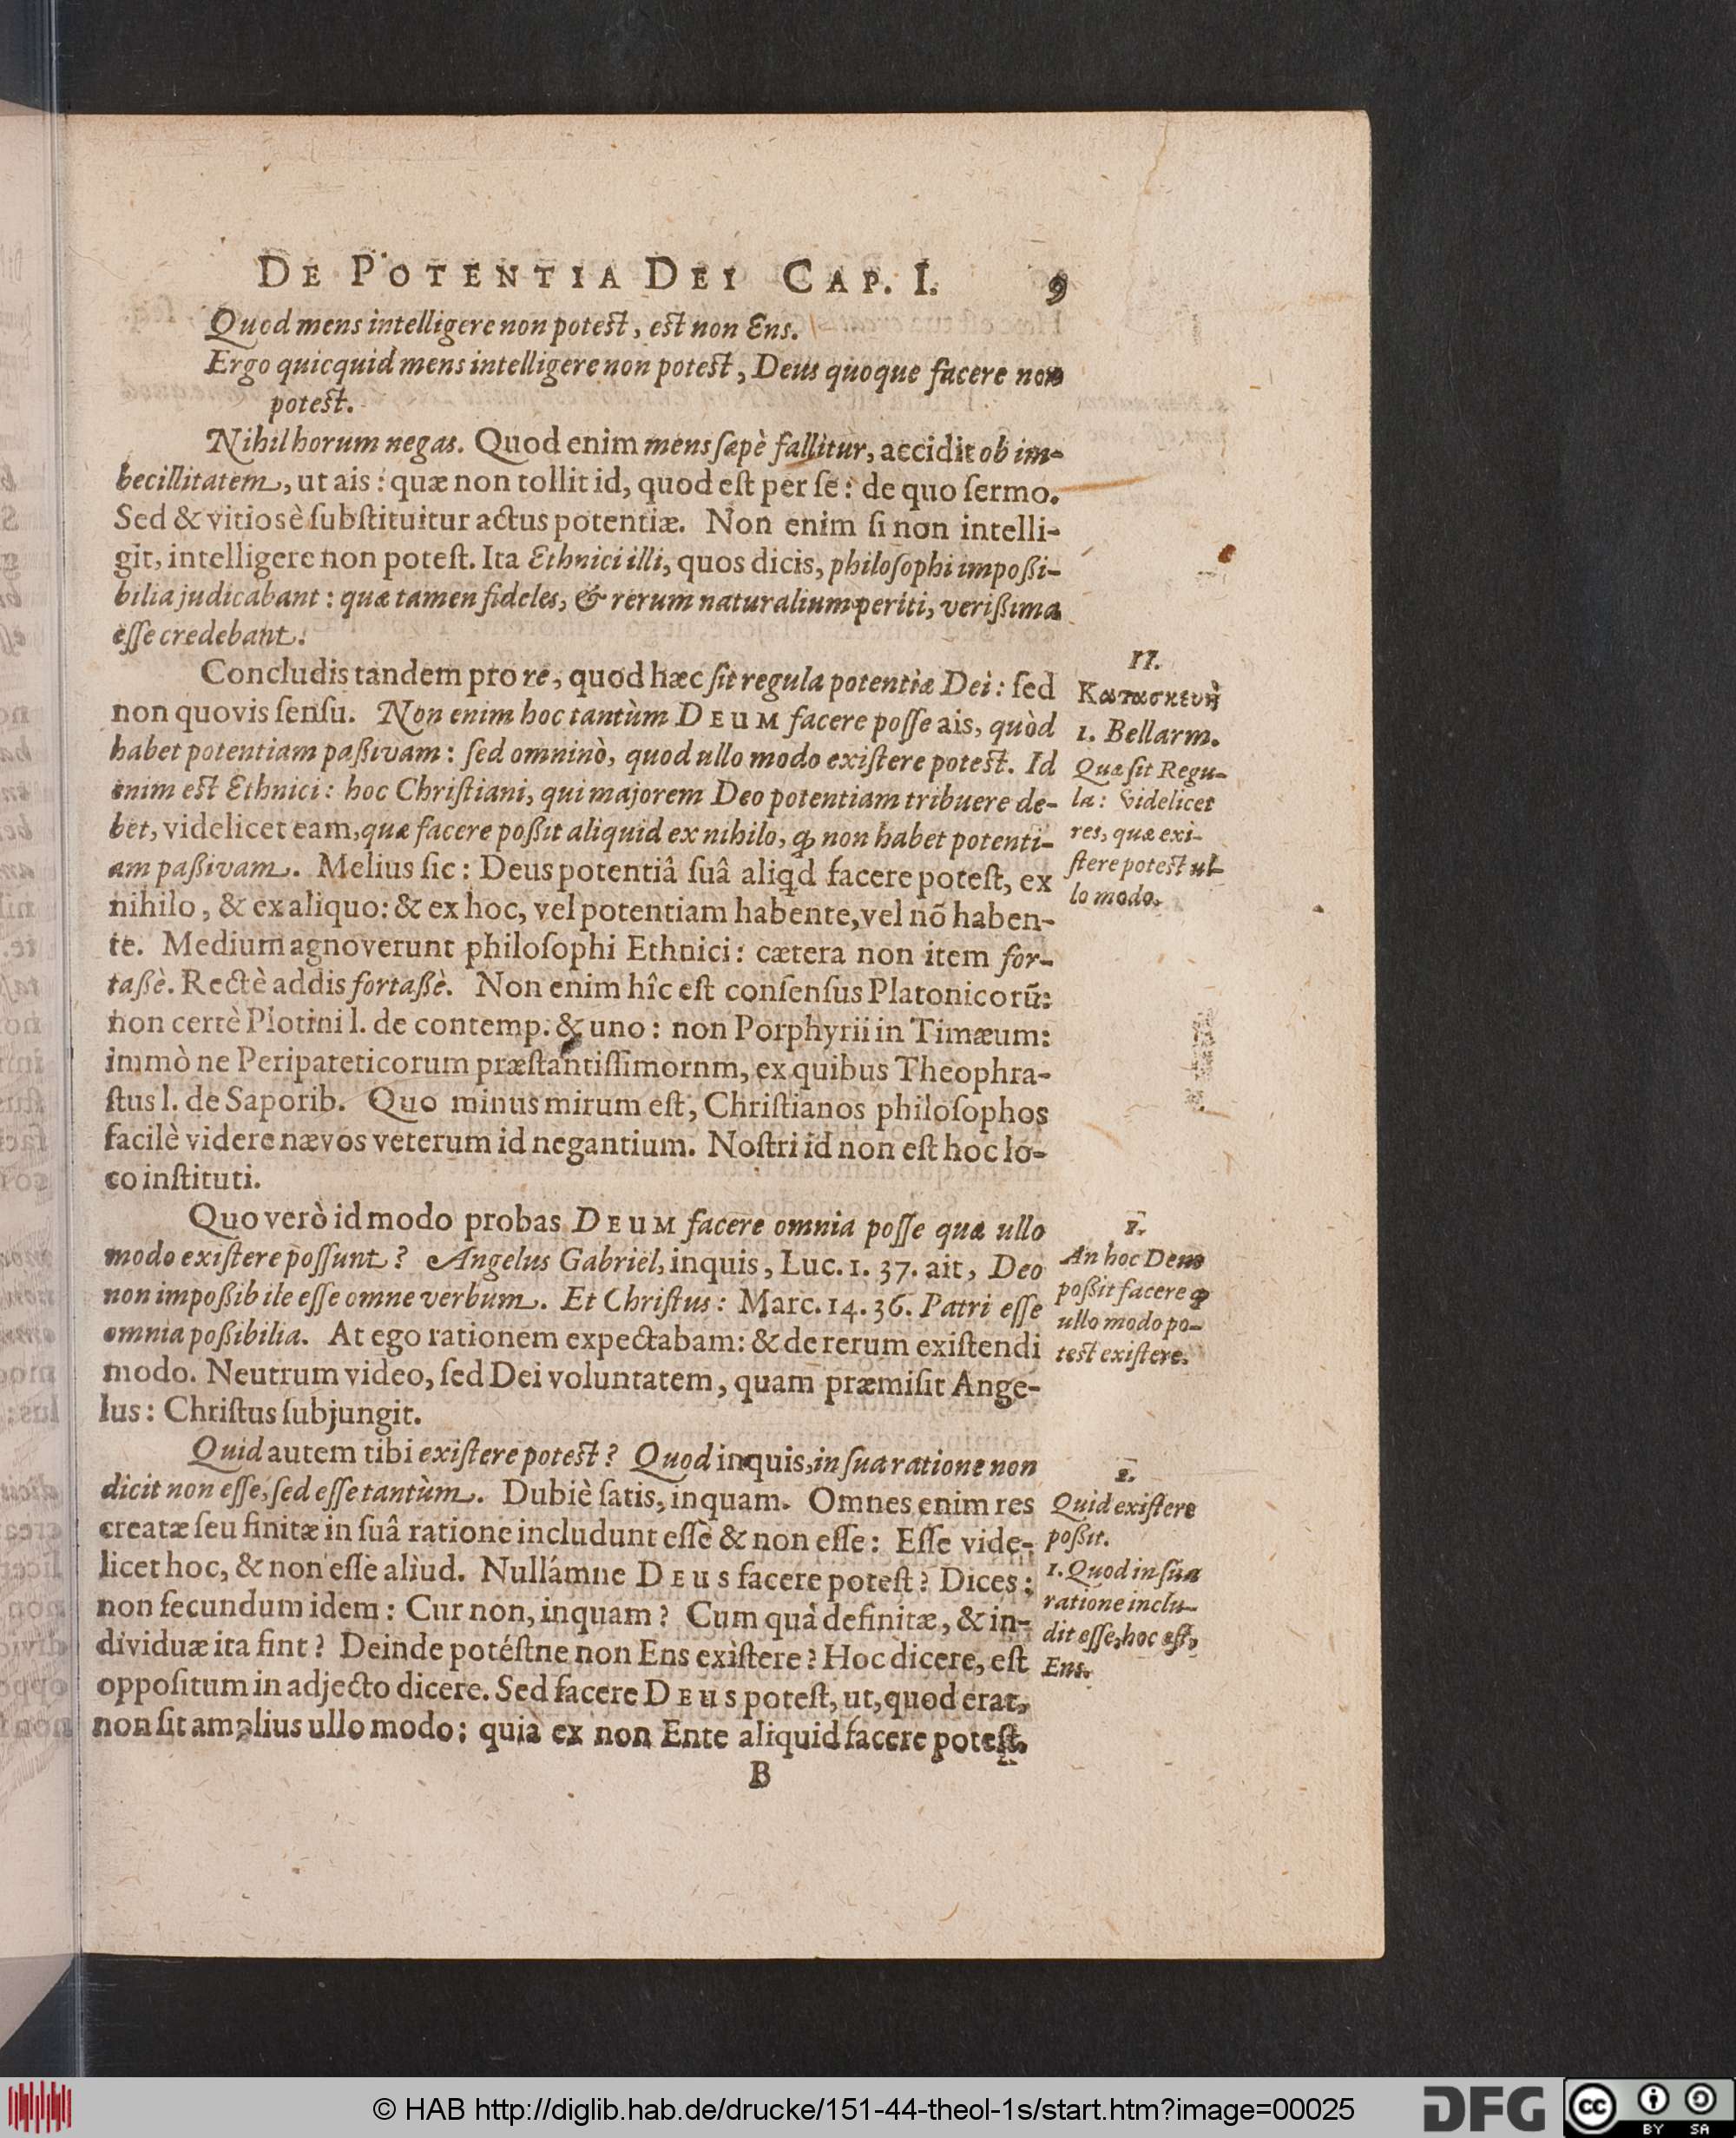 DE POTENTIA DEI CAP. I. 9
Quod mens intelligere non potest, est non Ens.
Ergo quicquid mens intelligere non potest, Deus quoque facere non
potest.
Nihil horum negas. Quod enim mens sæpè fallitur, accidit ob im-
becillitatem, ut ais: quæ non tollit id, quod eſt per ſe: de quo ſermo.
Sed & vitiosè ſubſtituitur actus potentiæ. Non enim ſi non intelli-
git, intelligere non poteſt. Ita Ethnici illi, quos dicis, philoſophi impoßi-
bilia judicabant: quæ tamen fideles, & rerum naturalium periti, verißima
eſſe credebant.
Concludis tandem pro re, quod hæc ſit regula potentiæ Dei: ſed
non quovis ſenſu. Non enim hoc tantùm DEUM facere poſſe ais, quòd
habet potentiam paßivam: ſed omninò, quod ullo modo exiſtere poteſt. Id
enim eſt Ethnici: hoc Chriſtiani, qui majorem Deo potentiam tribuere de-
bet, videlicet eam, quæ facere poßit aliquid ex nihilo, ꝙ non habet potenti-
am paßivam. Melius ſic: Deus potentiâ ſuâ aliqd facere poteſt, ex
nihilo, & ex aliquo: & ex hoc, vel potentiam habente, vel nõ haben-
te. Medium agnoverunt philoſophi Ethnici: cætera non item for-
taßè. Rectè addis fortaßè. Non enim hîc eſt conſenſus Platonicorũ:
non certè Plotini l. de contemp. & uno: non Porphyrii in Timæum:
immò ne Peripateticorum præſtantiſſimornm, ex quibus Theophra-
ſtus l. de Saporib. Quo minus mirum eſt, Chriſtianos philoſophos
facilè videre nævos veterum id negantium. Noſtri id non eſt hoc lo-
co inſtituti.
Quo verò id modo probas DEUM facere omnia poſſe quæ ullo
modo exiſtere poſſunt? Angelus Gabriel, inquis, Luc. 1. 37. ait, Deo
non impoßibile eſſe omne verbum. Et Chriſtus: Marc. 14. 36. Patri eſſe
omnia poßibilia. At ego rationem expectabam: & de rerum exiſtendi
modo. Neutrum video, ſed Dei voluntatem, quam præmiſit Ange-
lus: Chriſtus ſubjungit.
Quid autem tibi exiſtere poteſt? Quod inquis, in ſua ratione non
dicit non eſſe, ſed eſſe tantùm. Dubiè ſatis, inquam. Omnes enim res
creatæ ſeu finitæ in ſuâ ratione includunt eſſe & non eſſe: Eſſe vide-
licet hoc, & non eſſe aliud. Nullámne DEUS facere poteſt? Dices:
non ſecundum idem: Cur non, inquam? Cum quà definitæ, & in-
dividuæ ita ſint? Deinde potéſtne non Ens exiſtere? Hoc dicere, eſt
oppoſitum in adjecto dicere. Sed facere DEUS poteſt, ut, quod erat,
non ſit amplius ullo modo: quia ex non Ente aliquid facere poteſt.
B
17.
Κατασκευὴ
1. Bellarm.
Quæ ſit Regu-
la: videlicet
res, quæ exi-
ſtere poteſt ul-
lo modo.
1.
An hoc Deus
poßit facere ꝙ
ullo modo po-
teſt exiſtere.
2.
Quid exiſtere
poßit.
1. Quod in ſua
ratione inclu-
dit eſſe, hoc eſt,
Ens.
© HAB http://diglib.hab.de/drucke/151-44-theol-1s/start.htm?image=00025
DFG
CC
BY SA